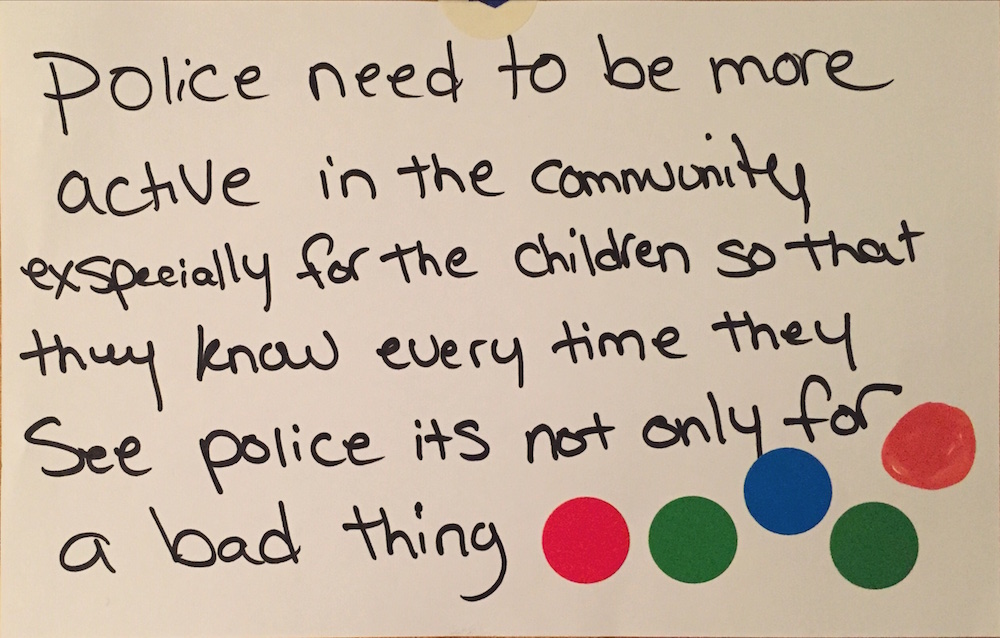 Police need to be more
active in the community
exspecially for the children so that
they know every time they
See police its not only for
a bad thing